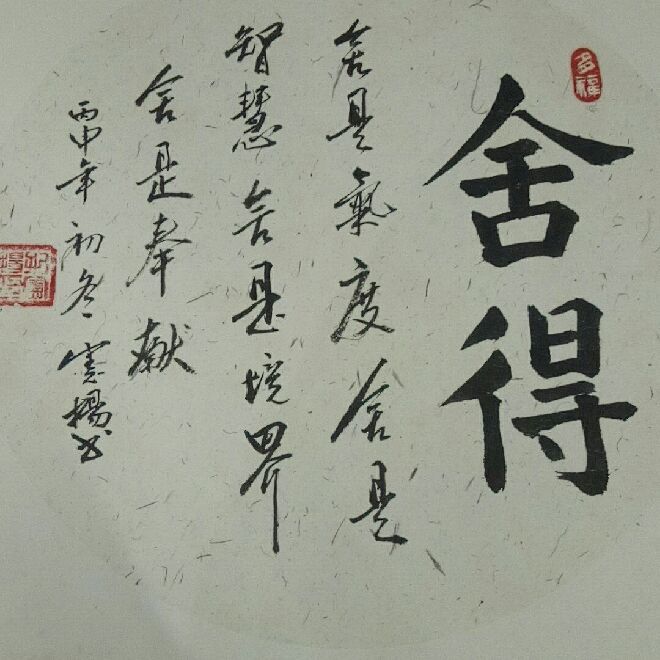 多福
舍得
舍是氣度舍是
智慧舍是境界
舍是奉献
丙申年初冬憲楊书